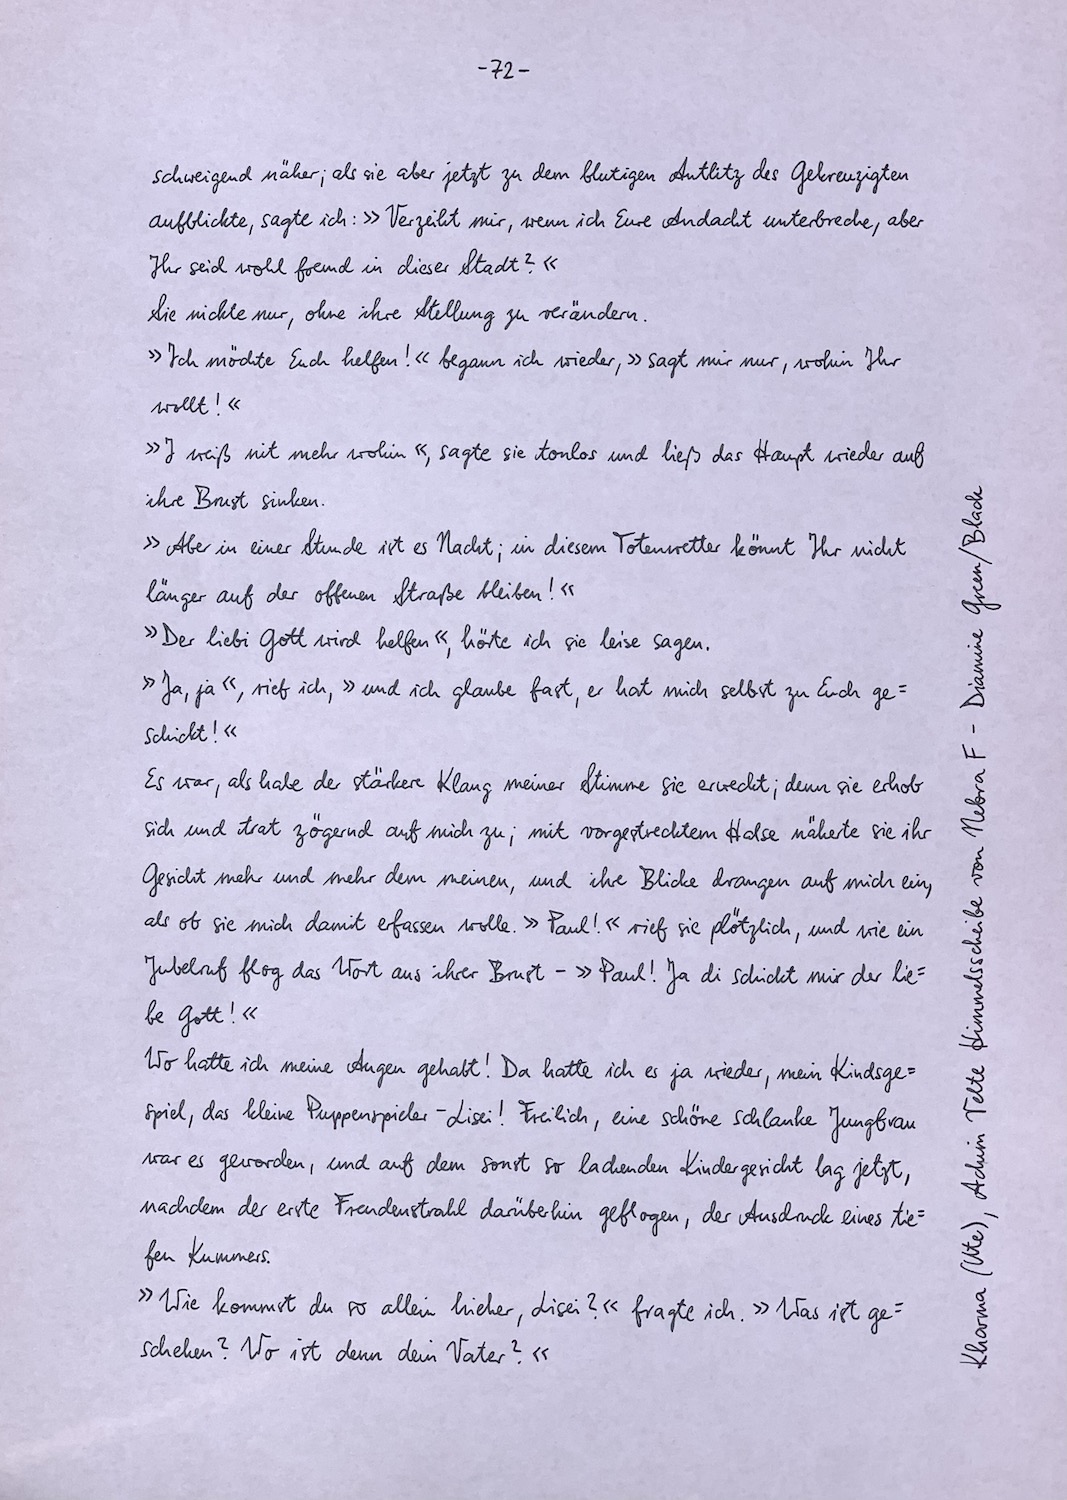 -72-
schweigend näher; als sie aber jetzt zu dem blutigen Antlitz des Gekreuzigten
aufblickte, sagte ich: »Verzeiht mir, wenn ich Eure Andacht unterbreche, aber
Ihr seid wohl fremd in dieser Stadt?«
Sie nickte nur, ohne ihre Stellung zu verändern.
»Ich möchte Euch helfen!« begann ich wieder, »sagt mir nur, wohin Ihr
wollt!«
»I weiß nit mehr wohin«, sagte sie tonlos und ließ das Haupt wieder auf
ihre Brust sinken.
»Aber in einer Stunde ist es Nacht; in diesem Totenwetter könnt Ihr nicht
länger auf der offenen Straße bleiben!«
»Der liebi Gott wird helfen«, hörte ich sie leise sagen.
»Ja, ja«, rief ich, »und ich glaube fast, er hat mich selbst zu Euch ge=
schickt!«
Es war, als habe der stärkere Klang meiner Stimme sie erweckt; denn sie erhob
sich und trat zögernd auf mich zu; mit vorgestrecktem Halse näherte sie ihr
Gesicht mehr und mehr dem meinen, und ihre Blicke drangen auf mich ein,
als ob sie mich damit erfassen wolle. »Paul!« rief sie plötzlich, und wie ein
Jubelruf flog das Wort aus ihrer Brust - »Paul! Ja di schickt mir der lie=
be Gott!«
Wo hatte ich meine Augen gehabt! Da hatte ich es ja wieder, mein Kindsge=
spiel, das kleine Puppenspieler-Lisei! Freilich, eine schöne schlanke Jungfrau
war es geworden, und auf dem sonst so lachenden Kindergesicht lag jetzt,
nachdem der erste Freudenstrahl darüberhin geflogen, der Ausdruck eines tie=
fen Kummers.
»Wie kommst du so allein hieher, Lisei?« fragte ich. »Was ist ge=
schehen? Wo ist denn dein Vater?«
Kharma (Ute), Achim Telte Himmelsscheibe von Nebra F - Diamine Green/Black